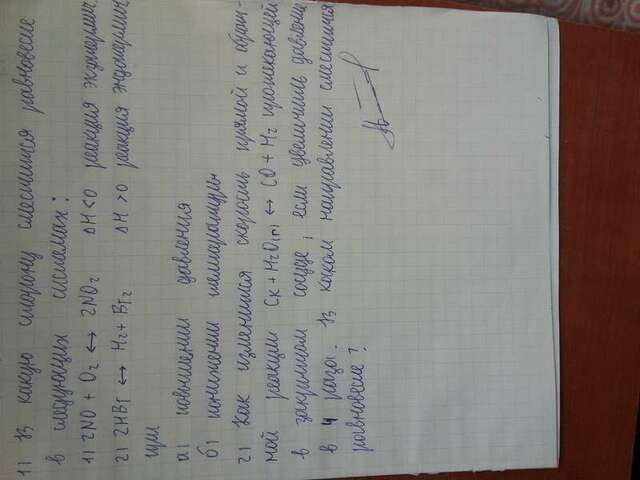 1) В какую сторону сместится равновесие
в следующих системах:
1) 2NO + O2 ↔ 2NO2 ΔH<0 реакция экзотермич
2) 2HBr ↔ H2+Br2 ΔH>0 реакция эндотермич
при
а) повышении давления
б) понижении температуры
2) Как изменится скорость прямой и обрат-
ной реакции Cк + H2O(п) ↔ CO + H2 протекающей
в закрытом сосуде, если увеличить давление
в 4 раза. В каком направлении сместится
равновесие?